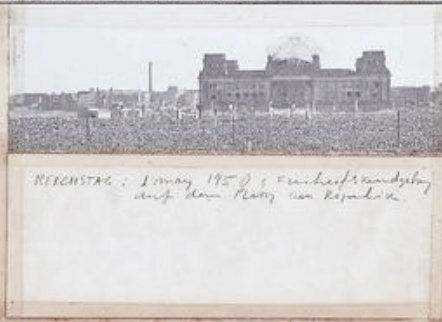 REICHSTAG : 1 may 1950, Freiheitskundgebung
auf dem Platz der Republik.